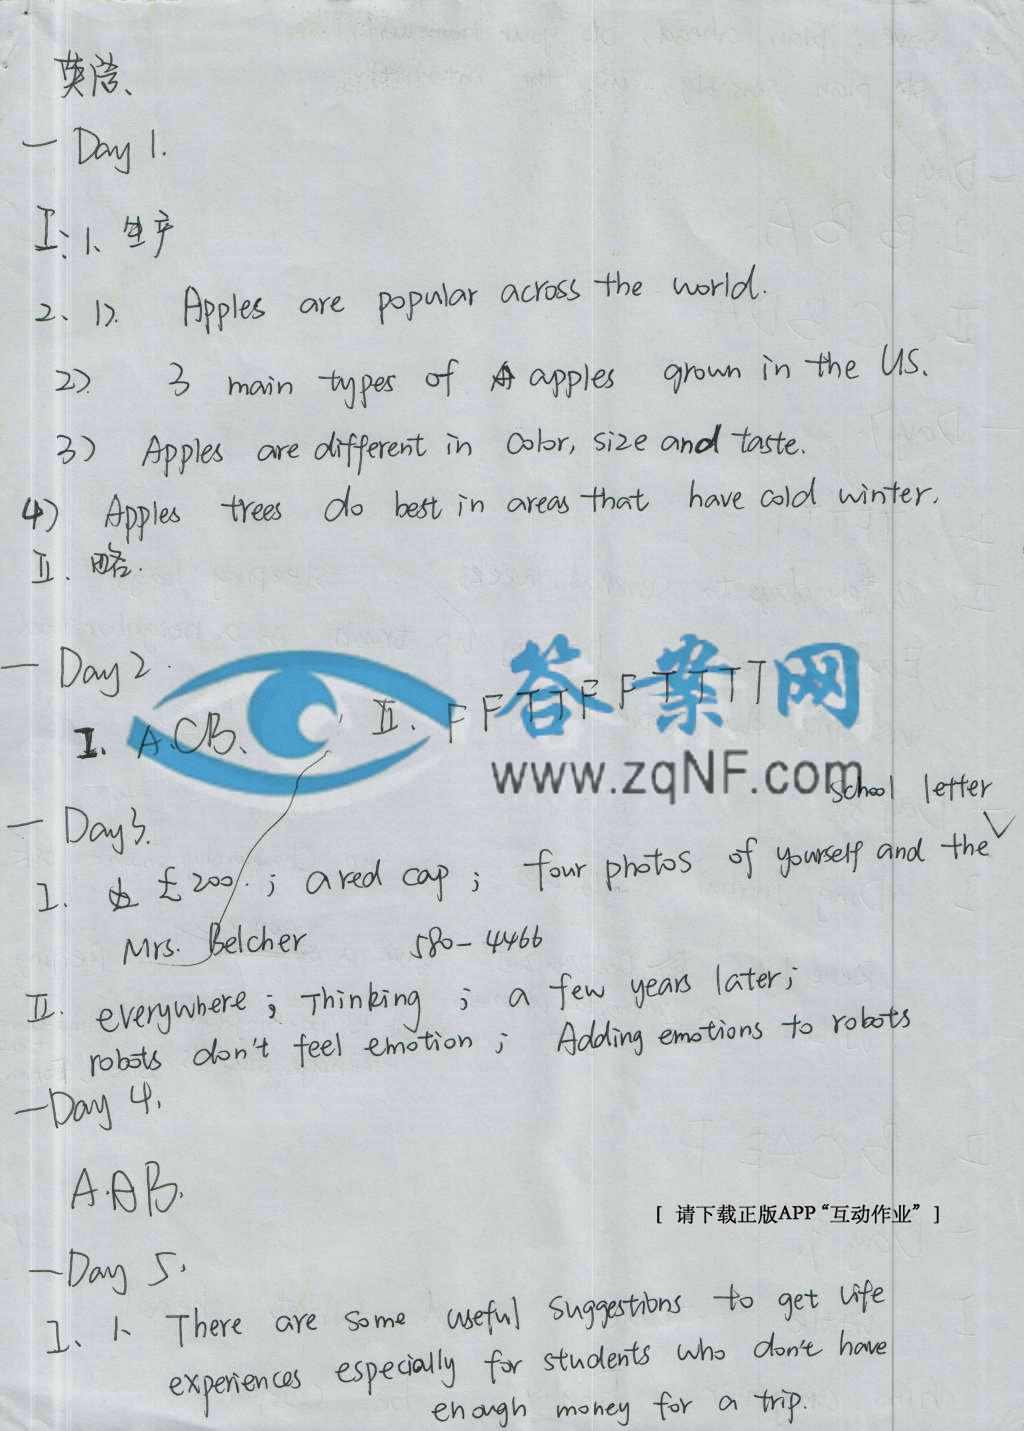 英语、
一 Day 1.
I: 1、生产
2、1>. Apples are popular across the world.
2>. 3 main types of apples grown in the US.
3) Apples are different in color, size and taste.
4) Apples trees do best in areas that have cold winter.
II. 略.
一 Day 2.
I. A.CB. II. F F T T F F T T T T
答案网
www.zqNF.com
一 Day 3.
school letter
I. £200. ; a red cap ; four photos of yourself and the
Mrs. Belcher 580-4466
II. everywhere ; Thinking ; a few years later ;
robots don't feel emotion ; Adding emotions to robots
一 Day 4.
A.AB.
[ 请下载正版APP“互动作业” ]
一 Day 5.
I. 1、 There are some useful suggestions to get life
experiences especially for students who don't have
enough money for a trip.